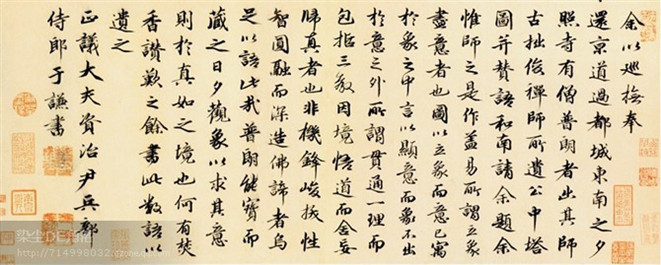 余以巡撫奉
還京道過都城東南之夕
照寺有僧普朗者出其師
古拙俊禪師所遺公中塔
圖并贊語和南請余題余
惟師之是作蓋易所謂立象
盡意者也圖以立象而意已寓
於象之中言以顯意而象不出
於意之外所謂貫通一理而
包括三教因境悟道而舍妄
歸真者也非機鋒峻拔性
智圓融而深造佛諦者烏
足以語此哉普朗能寶而
藏之日夕觀象以求其意
則於真如之境也何有焚
香讚歎之餘書此數語以
遺之
正議大夫資治尹兵部
侍郎于謙書